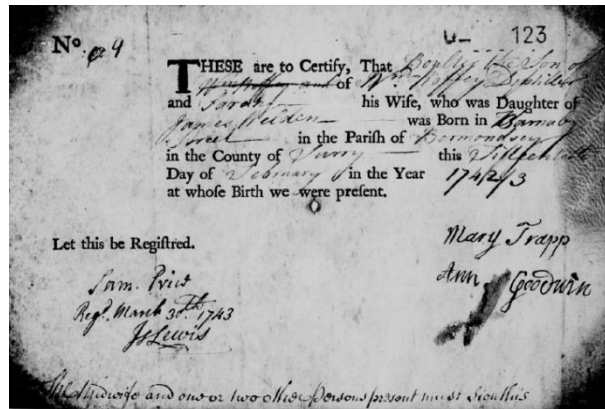 123
No. 9
THESE are to Certify, That Boulter the Son of
of Wm Toffey Distiller
and Sarah his Wife, who was Daughter of
James Welden was Born in Barnaby
Street in the Parish of Bermondsey
in the County of Surry this Fifteenth
Day of February in the Year 1742/3
at whose Birth we were present.
Let this be Registred.
Mary Trapp
Sam. Price
Ann Goodwin
Regd. March 1743
Js Lewis
The Midwife and one or two other Persons present must Sign this